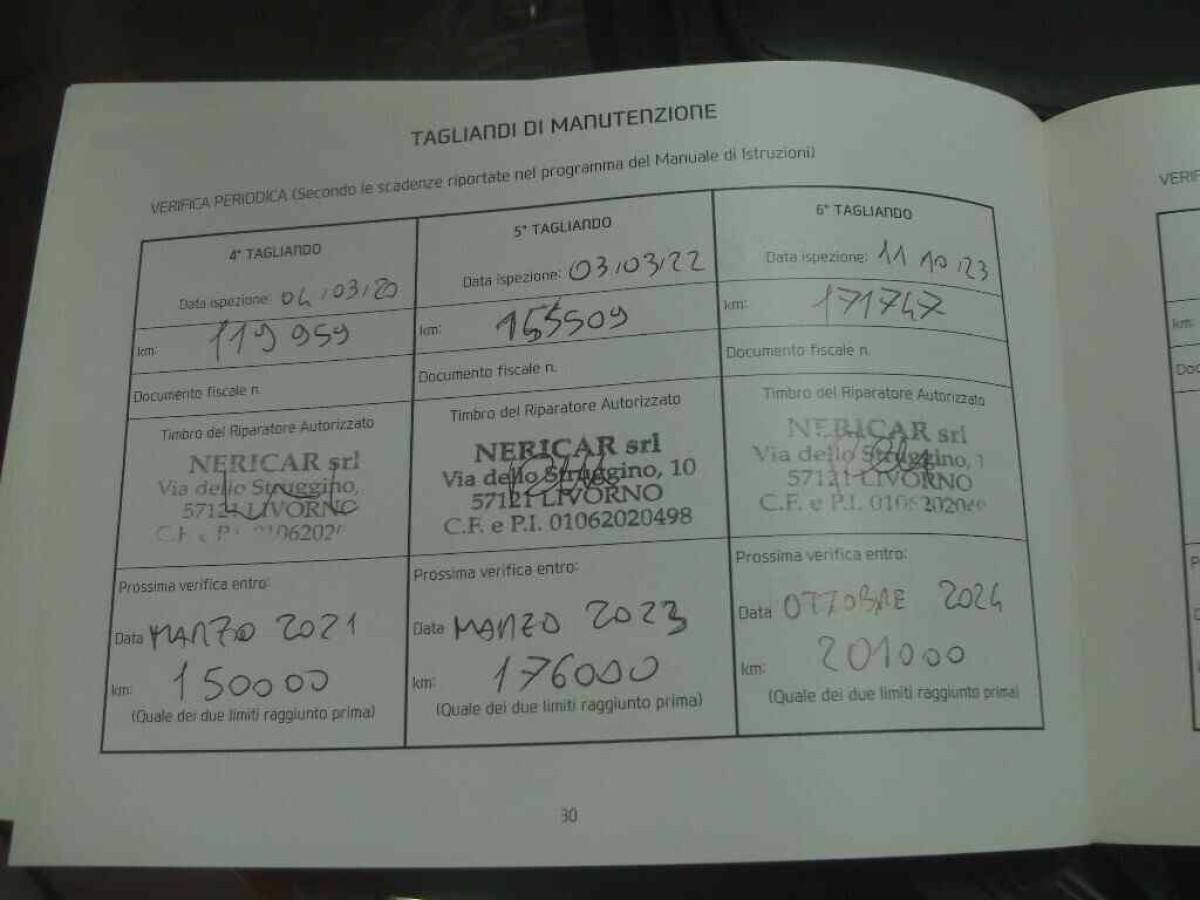 TAGLIANDI DI MANUTENZIONE
VERIFICA PERIODICA (Secondo le scadenze riportate nel programma del Manuale di Istruzioni)
4° TAGLIANDO
Data ispezione: 04/03/20
km: 119 959
Documento fiscale n.
Timbro del Riparatore Autorizzato
NERICAR srl
Via dello Struggino,
57121 LIVORNO
C.F. e P.I. 0106202
Prossima verifica entro:
Data MARZO 2021
km: 150000
(Quale dei due limiti raggiunto prima)
5° TAGLIANDO
Data ispezione: 03/03/22
km: 155509
Documento fiscale n.
Timbro del Riparatore Autorizzato
NERICAR srl
Via dello Struggino, 10
57121 LIVORNO
C.F. e P.I. 01062020498
Prossima verifica entro:
Data MARZO 2023
km: 176000
(Quale dei due limiti raggiunto prima)
6° TAGLIANDO
Data ispezione: 11 10/23
km: 171747
Documento fiscale n.
Timbro del Riparatore Autorizzato
NERICAR srl
Via dello Struggino, 1
57121 LIVORNO
C.F. e P.I.
Prossima verifica entro:
Data OTTOBRE 2024
km: 201000
(Quale dei due limiti raggiunto prima)
30
VERIF
km: